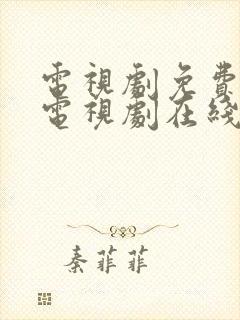 電視劇免費
電視劇在綫
秦菲菲